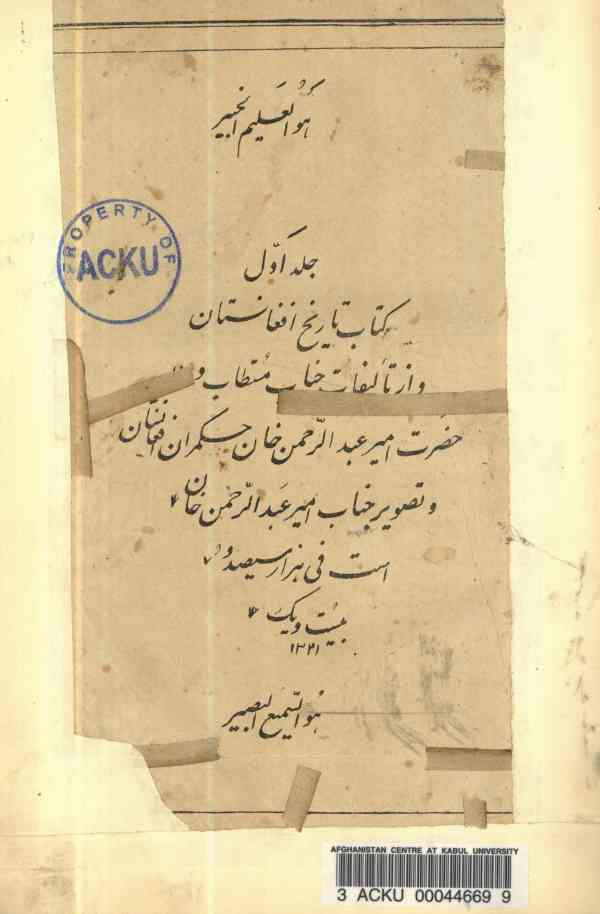 هو العلیم الخبیر
PROPERTY OF
ACKU
جلد اوّل
کتاب تاریخ افغانستان
و از تألیفات جناب مُتطاب و
حضرت امیر عبد الرّحمن خان حکمران افغانستان
و تصویر جناب امیر عَبد الرّحمن خان
است فی هزار سیصد و
بیست و یک
۱۳۲۱
هُو السّمیع البصیر
AFGHANISTAN CENTRE AT KABUL UNIVERSITY
3 ACKU 00044669 9